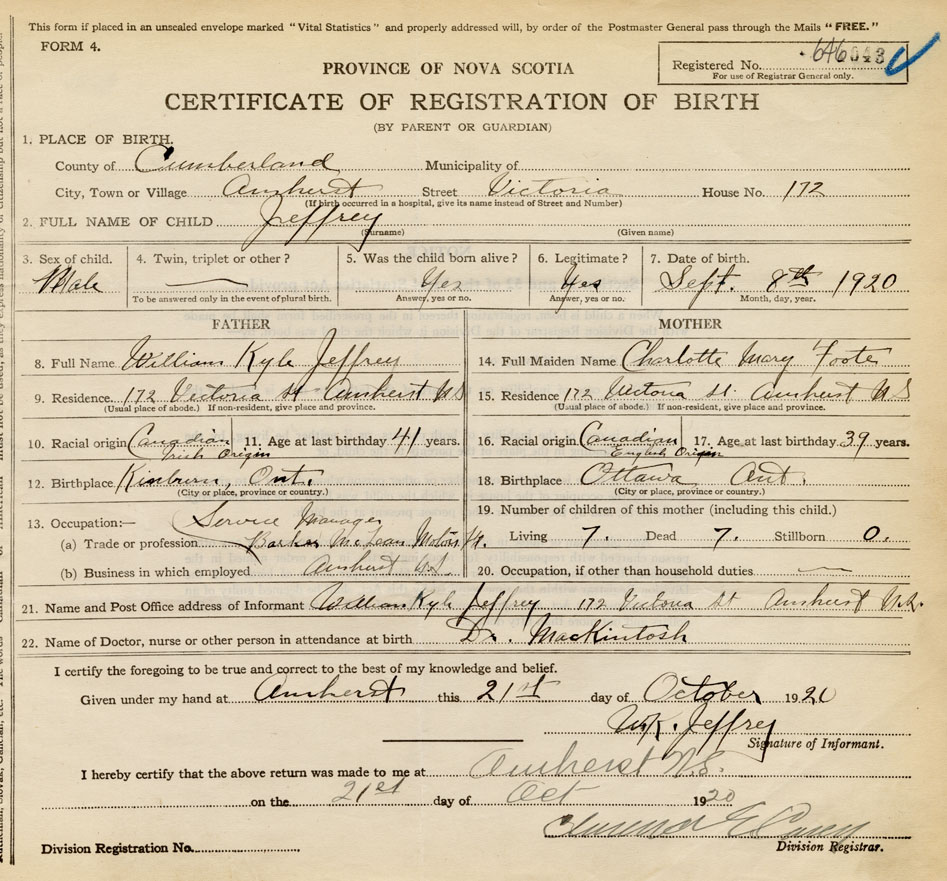 This form if placed in an unsealed envelope marked "Vital Statistics" and properly addressed will, by order of the Postmaster General pass through the Mails "FREE."
FORM 4.
Registered No. 646043
For use of Registrar General only.
PROVINCE OF NOVA SCOTIA
CERTIFICATE OF REGISTRATION OF BIRTH
(BY PARENT OR GUARDIAN)
1. PLACE OF BIRTH.
County of Cumberland Municipality of
City, Town or Village Amherst Street Victoria House No. 172
(If birth occurred in a hospital, give its name instead of Street and Number)
2. FULL NAME OF CHILD Jeffrey
(Surname) (Given name)
3. Sex of child. 4. Twin, triplet or other? 5. Was the child born alive? 6. Legitimate? 7. Date of birth.
Male — Yes Yes Sept. 8th 1920
To be answered only in the event of plural birth. Answer, yes or no. Answer, yes or no. Month, day, year.
FATHER
8. Full Name William Kyle Jeffrey
9. Residence. 172 Victoria St Amherst NS
(Usual place of abode.) If non-resident, give place and province.
10. Racial origin Canadian 11. Age at last birthday 41 years.
Irish Origin
12. Birthplace Kinburn, Ont.
(City or place, province or country.)
13. Occupation:— Service Manager
(a) Trade or profession Barker McLean Motors
(b) Business in which employed Amherst NS
MOTHER
14. Full Maiden Name Charlotte Mary Foote
15. Residence 172 Victoria St. Amherst NS
(Usual place of abode.) If non-resident, give place and province.
16. Racial origin Canadian 17. Age at last birthday 39 years.
English Origin
18. Birthplace Ottawa Ont.
(City or place, province or country.)
19. Number of children of this mother (including this child.)
Living 7. Dead 7. Stillborn 0.
20. Occupation, if other than household duties —
21. Name and Post Office address of Informant William Kyle Jeffrey 172 Victoria St Amherst N.S.
22. Name of Doctor, nurse or other person in attendance at birth Dr. MacKintosh
I certify the foregoing to be true and correct to the best of my knowledge and belief.
Given under my hand at Amherst this 21st day of October 1920
W.K. Jeffrey
Signature of Informant.
I hereby certify that the above return was made to me at Amherst N.S.
on the 21st day of Oct 1920
Division Registration No.
Division Registrar.